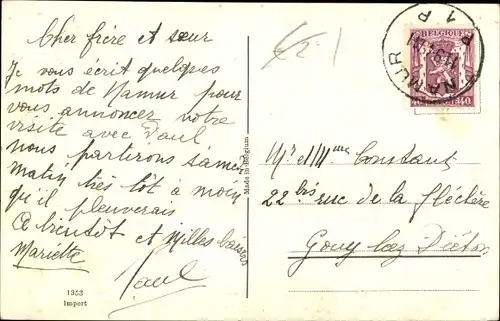 Cher frère et sœur
Je vous écrit quelques
mots de Namur pour
vous annoncez notre
visite avec Paul
nous partirons samedi
matin très tôt à moin
qu'il pleuverais
A bientôt et Milles baisers
Mariette
Paul
1353
Impert
Made in Belgium
€2.-
NAMUR
1 P
BELGIQUE
40 40
Mr et Mme Constant
22bis rue de la
Gouy lez Piéton